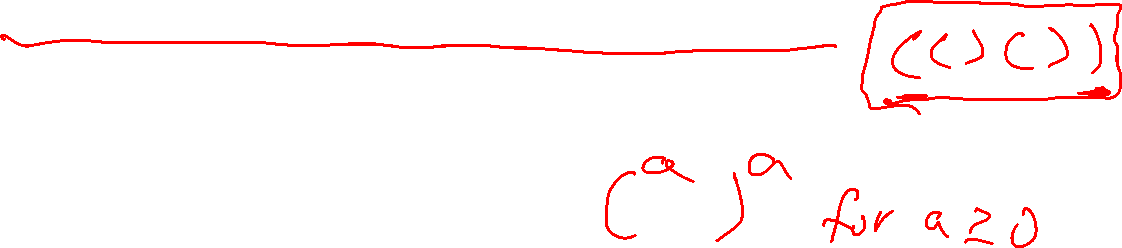 (()())
(ᵃ )ᵃ for a ≥ 0